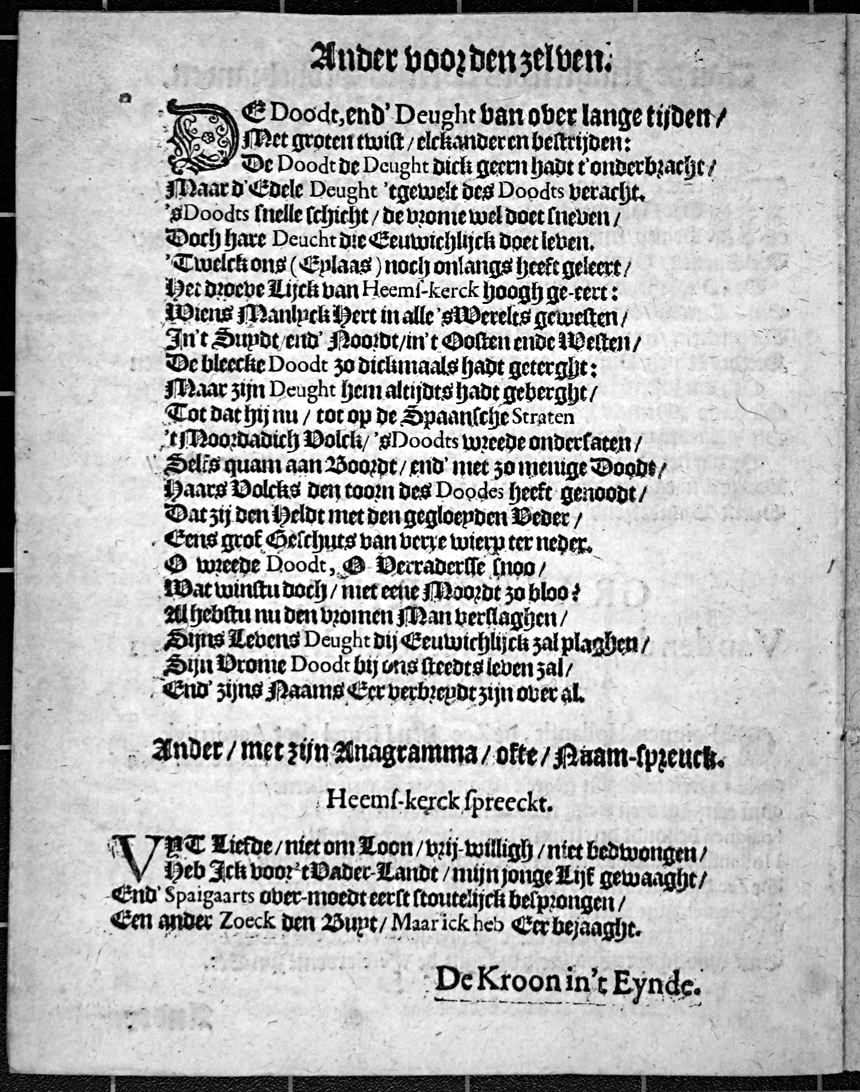 Ander voor den zelven.
DE Doodt, end' Deught van over lange tijden /
Met groten twist / elckanderen bestrijden:
De Doodt de Deught dick geern hadt t'onderbracht /
Maar d'Edele Deught 'tgewelt des Doodts veracht.
'sDoodts snelle schicht / de vrome wel doet sneven /
Doch hare Deucht die Eeuwichlijck doet leven.
'Twelck ons (Eylaas) noch onlangs heeft geleert /
Het droeve Lijck van Heems-kerck hoogh ge-eert:
Wiens Manlyck Hert in alle 'sWerelts gewesten /
In't Suydt / end' Noordt / in't Oosten ende Westen /
De bleecke Doodt zo dickmaals hadt geterght:
Maar zijn Deught hem altijdts hadt geberght /
Tot dat hij nu / tot op de Spaansche Straten
't Moordadich Volck / 'sDoodts wreede ondersaten /
Selfs quam aan Boordt / end' met zo menige Doodt /
Haars Volcks den toorn des Doodes heeft genoodt /
Dat zij den Heldt met den gegloeyden Veder /
Eens grof Geschuts van verre wierp ter neder.
O wreede Doodt, O Verradersse snoo /
Wat winstu doch / met eene Moordt zo bloo?
Al hebstu nu den vromen Man verslaghen /
Sijns Levens Deught dij Eeuwichlijck zal plaghen /
Sijn Vrome Doodt bij ons steedts leven zal /
End' zijns Naams Eer verbreydt zijn over al.
Ander / met zijn Anagramma / ofte / Naam-spreuck.
Heems-kerck spreeckt.
VYT Liefde / niet om Loon / vrij-willigh / niet bedwongen /
Heb Ick voor't Vader-Landt / mijn jonge Lijf gewaaght /
End' Spaigaarts over-moedt eerst stoutelijck besprongen /
Een ander Zoeck den Buyt / Maar ick heb Eer bejaaght.
De Kroon in't Eynde.